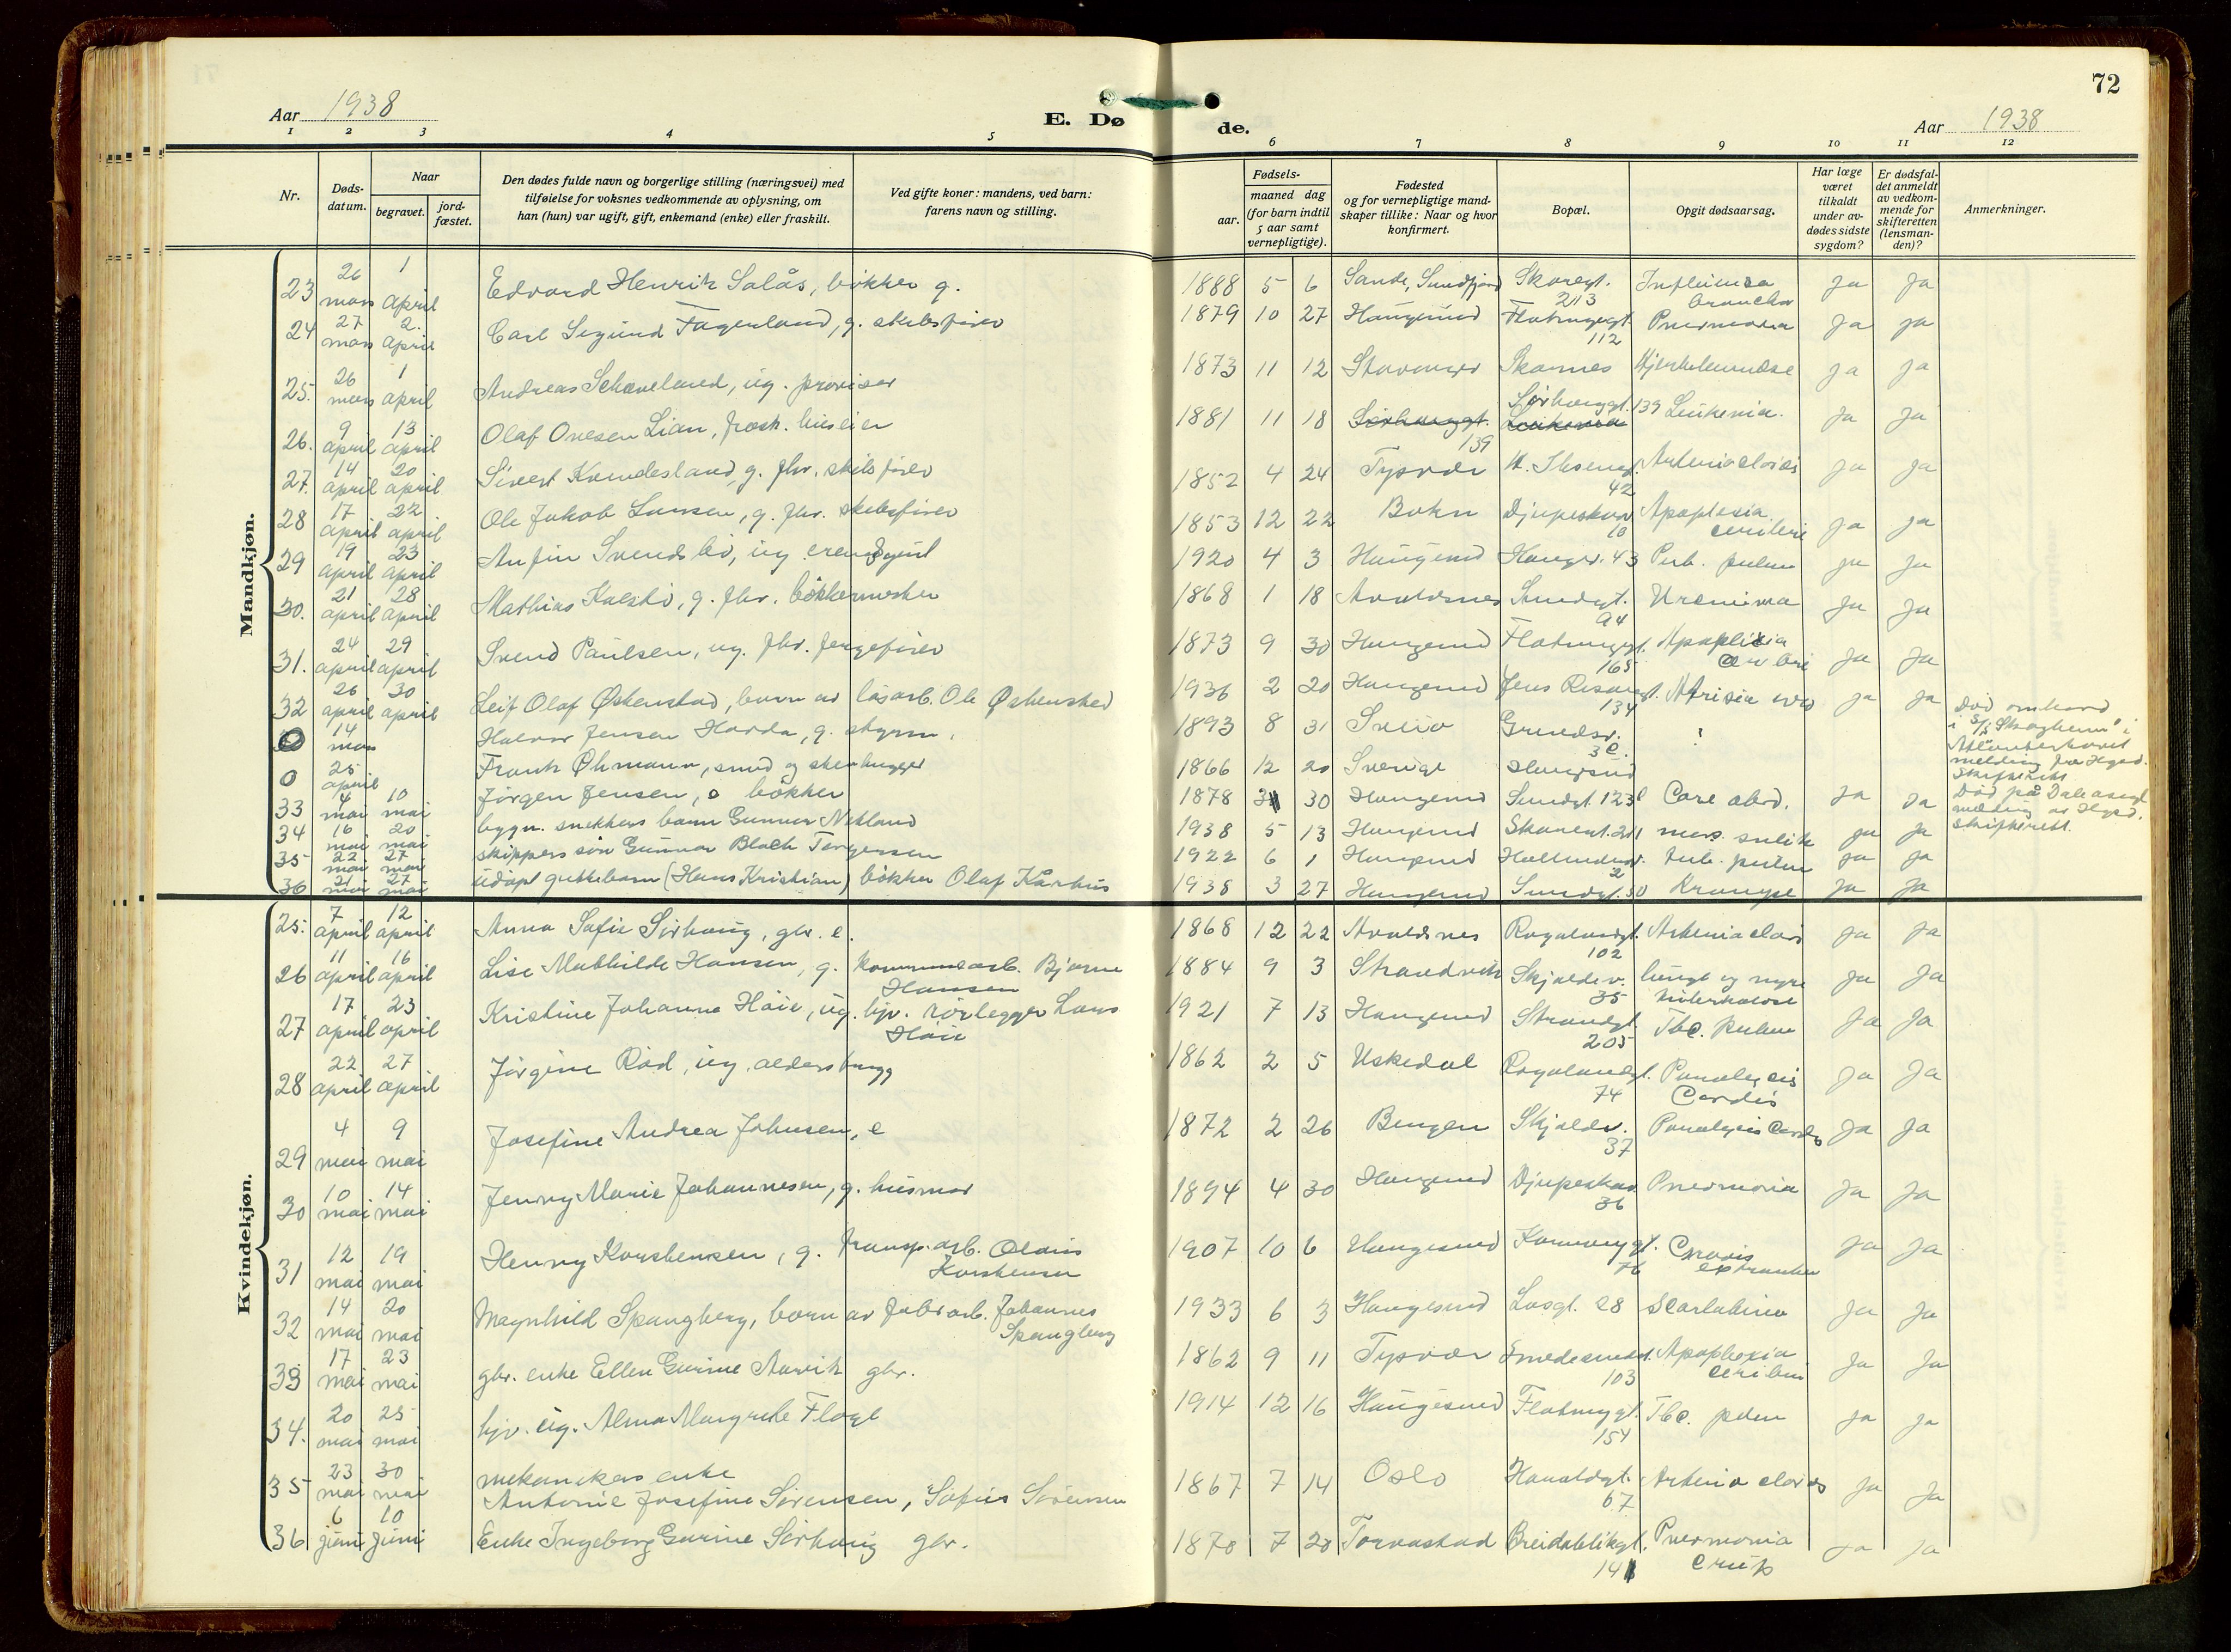 72
Aar 1938
E. Døde.
Aar 1938
1 2 3 4 5 6 7 8 9 10 11 12
Nr.
Døds-datum.
Naar
begravet.
jord-fæstet.
Den dødes fulde navn og borgerlige stilling (næringsvei) med
tilføielse for voksnes vedkommende av oplysning, om
han (hun) var ugift, gift, enkemand (enke) eller fraskilt.
Ved gifte koner: mandens, ved barn:
farens navn og stilling.
Fødsels-
aar.
maaned dag
(for barn indtil
5 aar samt
vernepligtige).
Fødested
og for vernepligtige mand-
skaper tillike: Naar og hvor
konfirmert.
Bopæl.
Opgit dødsaarsag.
Har læge
været
tilkaldt
under av-
dødes sidste
sygdom?
Er dødsfal-
det anmeldt
av vedkom-
mende for
skifteretten
(lensman-
den)?
Anmerkninger.
Mandkjøn.
23 26 mars 1 april Edvard Henrik Salås, bøkker g. 1888 5 6 Sande, Sundfjord Skaregt. 213 Influensa Ja Ja
24 27 mars 2. april Carl Sigurd Fagerland, g. skibsfører 1879 10 27 Haugesund Flotmyrgt. 112 Pneumonia Ja Ja
25. 26 mars 1 april Andreas Schaveland, ug. provisor 1873 11 12 Stavanger Skaanes Hjerteleamdse Ja Ja
26. 9 april 13 april Olaf Ovesen Lian, frask. huseier 1881 11 18 Sørhauggt. 139 Sørhauggt. 139 Leukemia. Ja Ja
27. 14 april 20 april Sivert Kvindesland, g. fhv. skibsfører 1852 4 24 Tysvær H. Ibsensgt. 42 Ja Ja
28 17 april 22 april Ole Jakob Larsen, g. fhv. skibsfører 1853 12 22 Bokn Djupaskar 10 Apoplexia cerebri Ja Ja
29 19 april 23 april Anfin Svendsbø, ug. erendsgut 1920 4 3 Haugesund Haugv. 43 Tub. pulm Ja Ja
30. 21 april 28 april Mathias Kalstø, g. fhv. bøkkermester 1868 1 18 Avaldsnes Sundgt. 94 Uremia Ja Ja
31. 24 april 29 april Svend Paulsen, ug. fhv. fergefører 1873 9 30 Haugesund Flotmyrgt. 165 Apoplexia Cerebri Ja Ja
32 26 april 30 april Leif Olaf Østenstad, barn av løsarb. Ole Østensted 1936 2 20 Haugesund 134 Ja Ja
0 14 mars Halvor Jensen Horda, g. styrm. 1893 8 31 Sveio 3 e. ? Død ombord i S/S "Skagheim" i Atlanterhavet melding fra Hgsd. Skifterett
0 25 april Frank Öhmann, smed og stenhugger 1866 12 20 Sverige Haugesund Død på melding av Hgsd. skifterett.
33 4 mai 10 mai Jørgen Jensen, e bøkker 1878 30 Haugesund Sundgt. 123 Ja Ja
34 16 mai 20 mai bygn. snekkers barn Gunnar Nekland 1938 5 13 Haugesund Skaregt. 201 Ja Ja
35 22 mai 27 mai skippers søn Gunnar Bloch Torgersen 1922 6 1 Haugesund 2 tub. pulm Ja Ja
36 21 mai 27 mai udøpt guttebarn (Hans Kristian) bøkker Olaf Kårhus 1938 3 27 Haugesund Sundgt. 50 Krampe Ja Ja
Kvindekjøn.
25. 7 april 12 april Anna Sofie Sørhaug, gbr. e. 1868 12 22 Avaldsnes Rogalandgt. 102 Ja Ja
26 11 april 16 april Lise Mathilde Hansen, g. kommunearb. Bjarne Hansen 1884 9 3 Strandvik Skjoldav. 35 lunge og nyre tuberkulose Ja Ja
27 17 april 23 april Kristine Johanne Høie, ug. hjv. rørlegger Lars Høie 1921 7 13 Haugesund Strandgt. 205 Tbc. pulm Ja Ja
28 22 april 27 april Jørgine Rød, ug. alderstrygd 1862 2 5 Uskedal Rogalandgt. 74 Paralysis Cordis Ja Ja
29 4 mai 9 mai Josefine Andrea Johnsen, e 1872 2 26 Bergen Skjoldav. 37 Paralysis Cordis Ja Ja
30 10 mai 14 mai Jenny Marie Johannesen, g. husmor 1894 4 30 Haugesund Djupaskar 36 Pneumonia Ja Ja
31 12 mai 19 mai Henny Korstensen, g. transp. arb. Olaus Korstensen 1907 10 6 Haugesund Karmøygt. 76 Ja Ja
32 14 mai 20 mai Magnhild Spangberg, barn av fabr. arb. Johannes Spangberg 1933 6 3 Haugesund 28 Scarlatina Ja Ja
33 17 mai 23 mai gbr. enke Ellen Gurine Aarvik gbr. 1862 9 11 Tysvær Smedesundet. 103 Apoplexia cerebri Ja Ja
34. 20 mai 25 mai hjv. ug. Alma Margrethe Floge 1914 12 16 Haugesund Flotmyrgt. 154 Tbc. pulm Ja Ja
35 23 mai 30 mai mekanikers enke Antonie Josefine Sørensen, Sofus Sørensen 1867 7 14 Oslo Haraldgt. 67 Ja Ja
36 6 juni 10 juni Enke Ingeborg Gurine Sørhaug gbr. 1870 7 20 Torvastad Breidablikgt. 141 Pneumonia crup Ja Ja